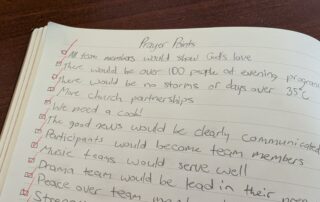 Prayer Points
All team members would show God's love
There would be over 100 people at evening program
There would be no storms or days over 35°C
More church partnerships
We need a cook!
The good news would be clearly communicated
Participants would become team members
Music teams would serve well
Drama team would be lead in their
Peace over team